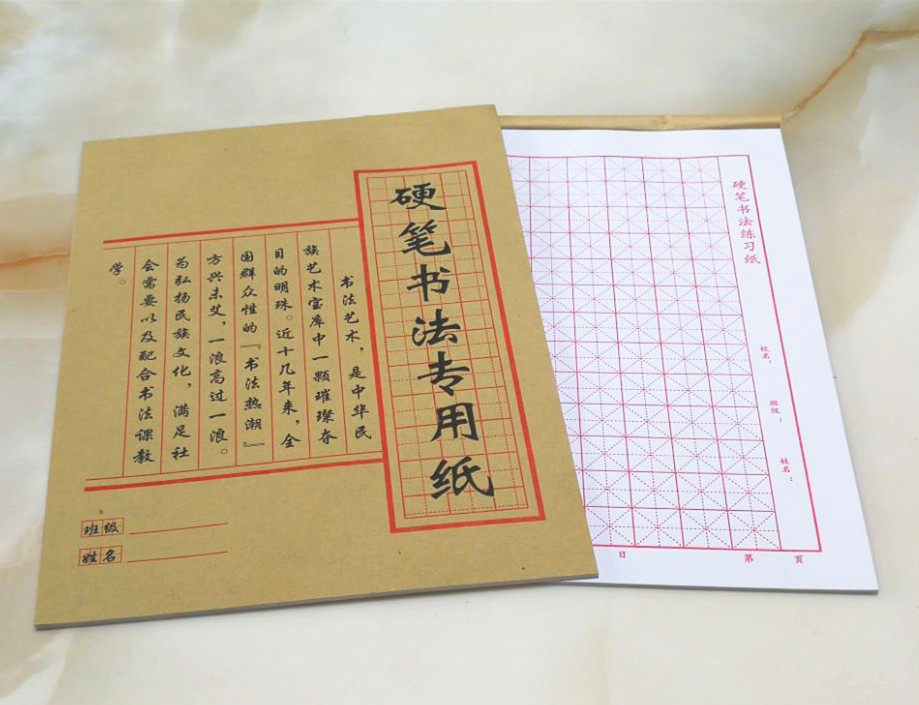 硬笔书法专用纸
书法艺术，是中华民
族艺术宝库中一颗璀璨夺
目的明珠。近十几年来，全
国群众性的『书法热潮』
方兴未艾，一浪高过一浪。
为弘扬民族文化，满足社
会需要以及配合书法课教
学。
班级
姓名
硬笔书法练习纸
校名：
班级：
姓名：
日
第 页